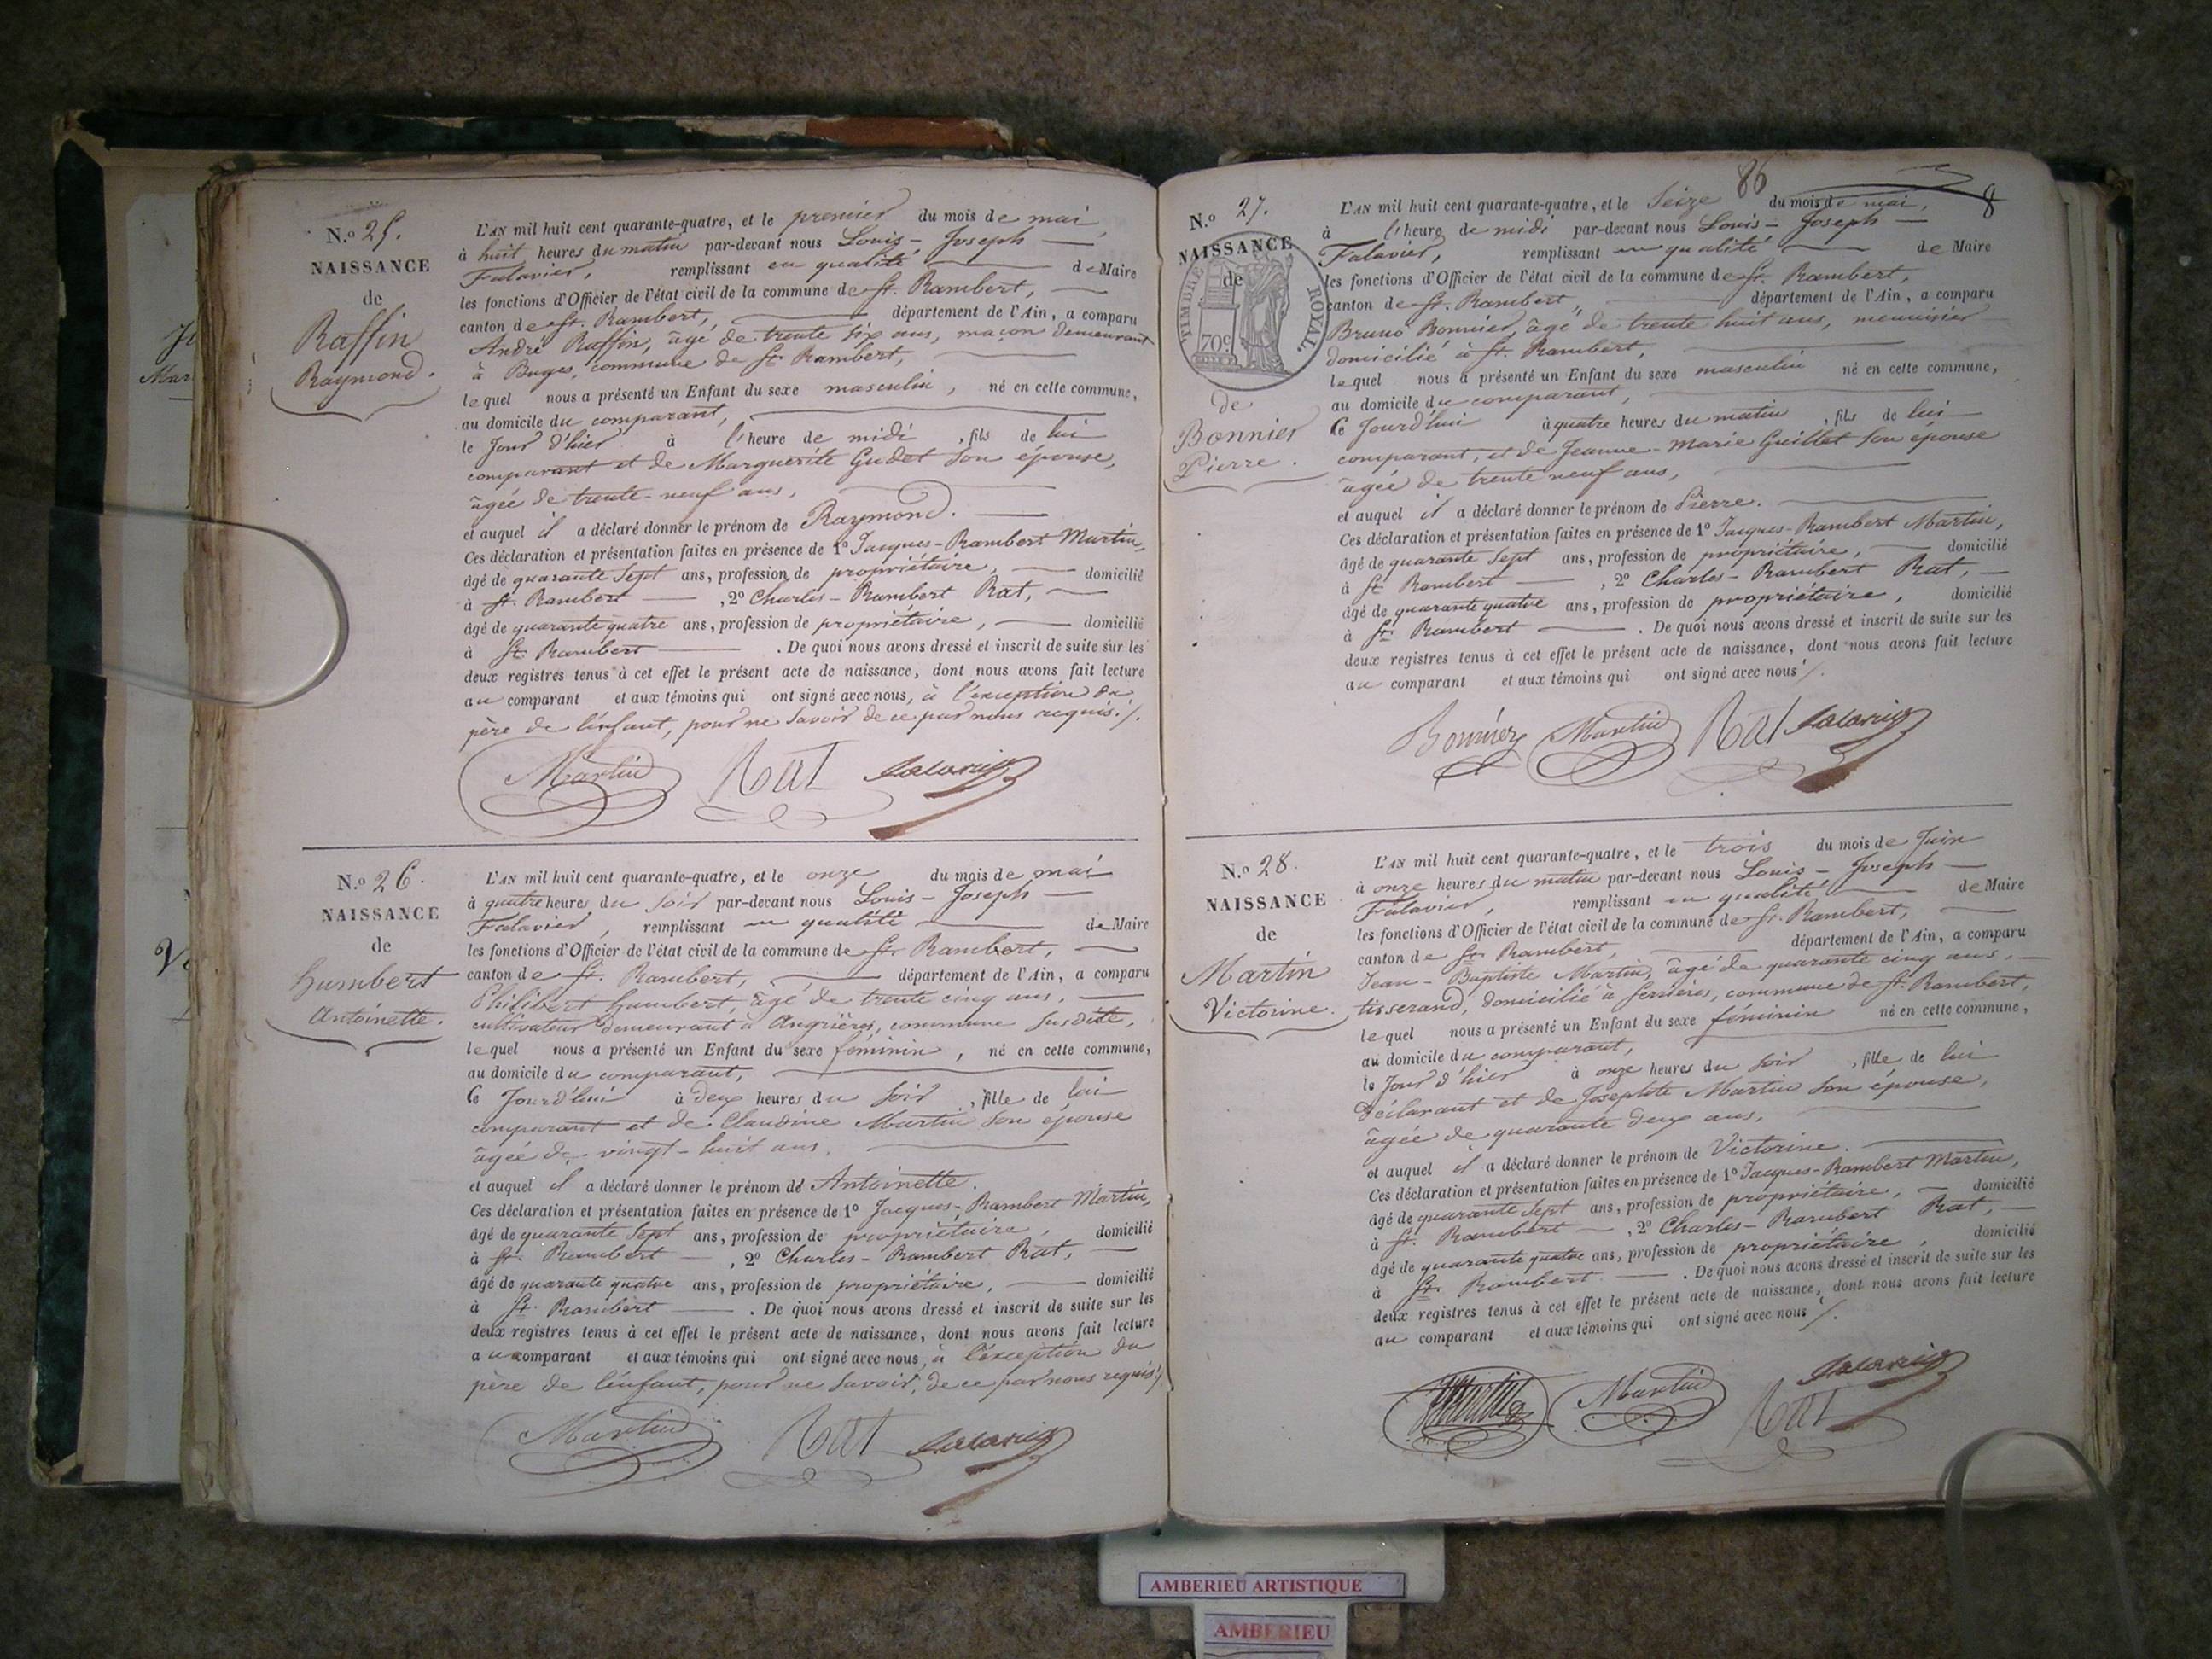 N.º 25.
NAISSANCE
de
Raffin
Raymond.
L'AN mil huit cent quarante-quatre, et le premier du mois de mai,
à huit heures du matin par-devant nous Louis-Joseph
Falavier, remplissant en qualité de Maire
les fonctions d'Officier de l'état civil de la commune de St. Rambert,
canton de St. Rambert, département de l'Ain, a comparu
André Raffin, âgé de trente six ans, maçon demeurant
à Buges, commune de St. Rambert,
lequel nous a présenté un Enfant du sexe masculin, né en cette commune,
au domicile du comparant,
le Jour d'hier à l'heure de midi, fils de lui
comparant et de Marguerite Gudet son épouse,
âgée de trente-neuf ans,
et auquel il a déclaré donner le prénom de Raymond.
Ces déclaration et présentation faites en présence de 1º Jacques-Rambert Martin,
âgé de quarante sept ans, profession de propriétaire, domicilié
à St. Rambert, 2º Charles-Rambert Rat,
âgé de quarante quatre ans, profession de propriétaire, domicilié
à St. Rambert. De quoi nous avons dressé et inscrit de suite sur les
deux registres tenus à cet effet le présent acte de naissance, dont nous avons fait lecture
au comparant et aux témoins qui ont signé avec nous, à l'exception du
père de l'enfant, pour ne savoir de ce par nous requis./.
Martin Rat Falavier
N.º 26.
NAISSANCE
de
humbert
Antoinette.
L'AN mil huit cent quarante-quatre, et le onze du mois de mai
à quatre heures du soir par-devant nous Louis-Joseph
Falavier, remplissant en qualité de Maire
les fonctions d'Officier de l'état civil de la commune de St. Rambert,
canton de St. Rambert, département de l'Ain, a comparu
Philibert humbert, âgé de trente cinq ans,
cultivateur demeurant à Angrières, commune susdite,
lequel nous a présenté un Enfant du sexe féminin, né en cette commune,
au domicile du comparant,
Ce Jourd'hui à deux heures du soir, fille de lui
comparant et de Claudine Martin son épouse
âgée de vingt-huit ans.
et auquel il a déclaré donner le prénom de Antoinette.
Ces déclaration et présentation faites en présence de 1º Jacques-Rambert Martin,
âgé de quarante sept ans, profession de propriétaire, domicilié
à St. Rambert, 2º Charles-Rambert Rat,
âgé de quarante quatre ans, profession de propriétaire, domicilié
à St. Rambert. De quoi nous avons dressé et inscrit de suite sur les
deux registres tenus à cet effet le présent acte de naissance, dont nous avons fait lecture
au comparant et aux témoins qui ont signé avec nous, à l'exception du
père de l'enfant, pour ne savoir, de ce par nous requis./.
Martin Rat Falavier
86
8
N.º 27.
NAISSANCE
de
TIMBRE ROYAL
70c
de
Bonnier
Pierre.
L'AN mil huit cent quarante-quatre, et le Seize du mois de mai,
à l'heure de midi par-devant nous Louis-Joseph
Falavier, remplissant en qualité de Maire
les fonctions d'Officier de l'état civil de la commune de St. Rambert,
canton de St. Rambert, département de l'Ain, a comparu
Bruno Bonnier, âgé de trente huit ans, menuisier
domicilié à St. Rambert,
lequel nous a présenté un Enfant du sexe masculin né en cette commune,
au domicile du comparant,
Ce Jourd'hui à quatre heures du matin, fils de lui
comparant, et de Jeanne-Marie Guillet son épouse
âgée de trente neuf ans,
et auquel il a déclaré donner le prénom de Pierre.
Ces déclaration et présentation faites en présence de 1º Jacques-Rambert Martin,
âgé de quarante sept ans, profession de propriétaire, domicilié
à St. Rambert, 2º Charles-Rambert Rat,
âgé de quarante quatre ans, profession de propriétaire, domicilié
à St. Rambert. De quoi nous avons dressé et inscrit de suite sur les
deux registres tenus à cet effet le présent acte de naissance, dont nous avons fait lecture
au comparant et aux témoins qui ont signé avec nous/.
Bonnier Martin Rat Falavier
N.º 28.
NAISSANCE
de
Martin
Victorine.
L'AN mil huit cent quarante-quatre, et le trois du mois de Juin
à onze heures du matin par-devant nous Louis-Joseph
Falavier, remplissant en qualité de Maire
les fonctions d'Officier de l'état civil de la commune de St. Rambert,
canton de St. Rambert, département de l'Ain, a comparu
Jean-Baptiste Martin, âgé de quarante cinq ans,
tisserand, domicilié à Serrières, commune de St. Rambert,
lequel nous a présenté un Enfant du sexe féminin né en cette commune,
au domicile du comparant,
le Jour d'hier à onze heures du soir, fille de lui
déclarant et de Josephte Martin son épouse,
âgée de quarante deux ans,
et auquel il a déclaré donner le prénom de Victorine.
Ces déclaration et présentation faites en présence de 1º Jacques-Rambert Martin,
âgé de quarante sept ans, profession de propriétaire, domicilié
à St. Rambert, 2º Charles-Rambert Rat,
âgé de quarante quatre ans, profession de propriétaire, domicilié
à St. Rambert. De quoi nous avons dressé et inscrit de suite sur les
deux registres tenus à cet effet le présent acte de naissance, dont nous avons fait lecture
au comparant et aux témoins qui ont signé avec nous/.
Martin Martin Rat Falavier
AMBERIEU ARTISTIQUE
AMBERIEU